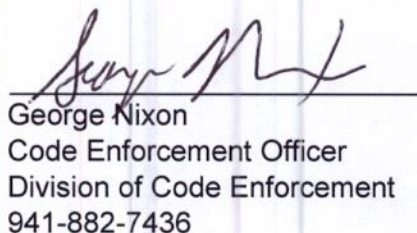 George Nixon
George Nixon
Code Enforcement Officer
Division of Code Enforcement
941-882-7436